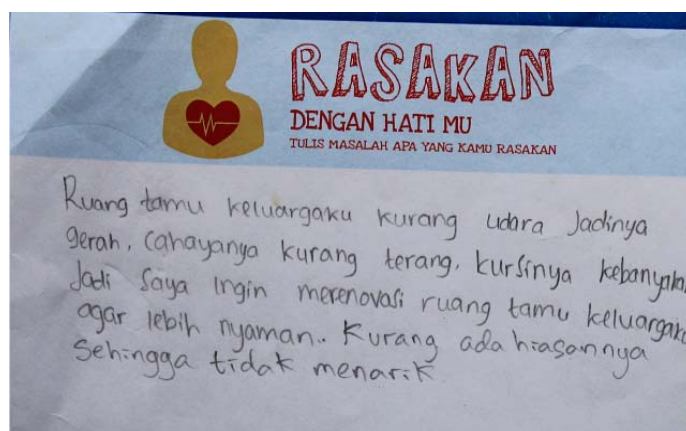 RASAKAN
DENGAN HATI MU
TULIS MASALAH APA YANG KAMU RASAKAN
Ruang tamu keluargaku kurang udara Jadinya
gerah, Cahayanya kurang terang, kursinya kebanyakan
Jadi Saya Ingin merenovasi ruang tamu keluargaku
agar lebih nyaman.. Kurang ada hiasannya
Sehingga tidak menarik